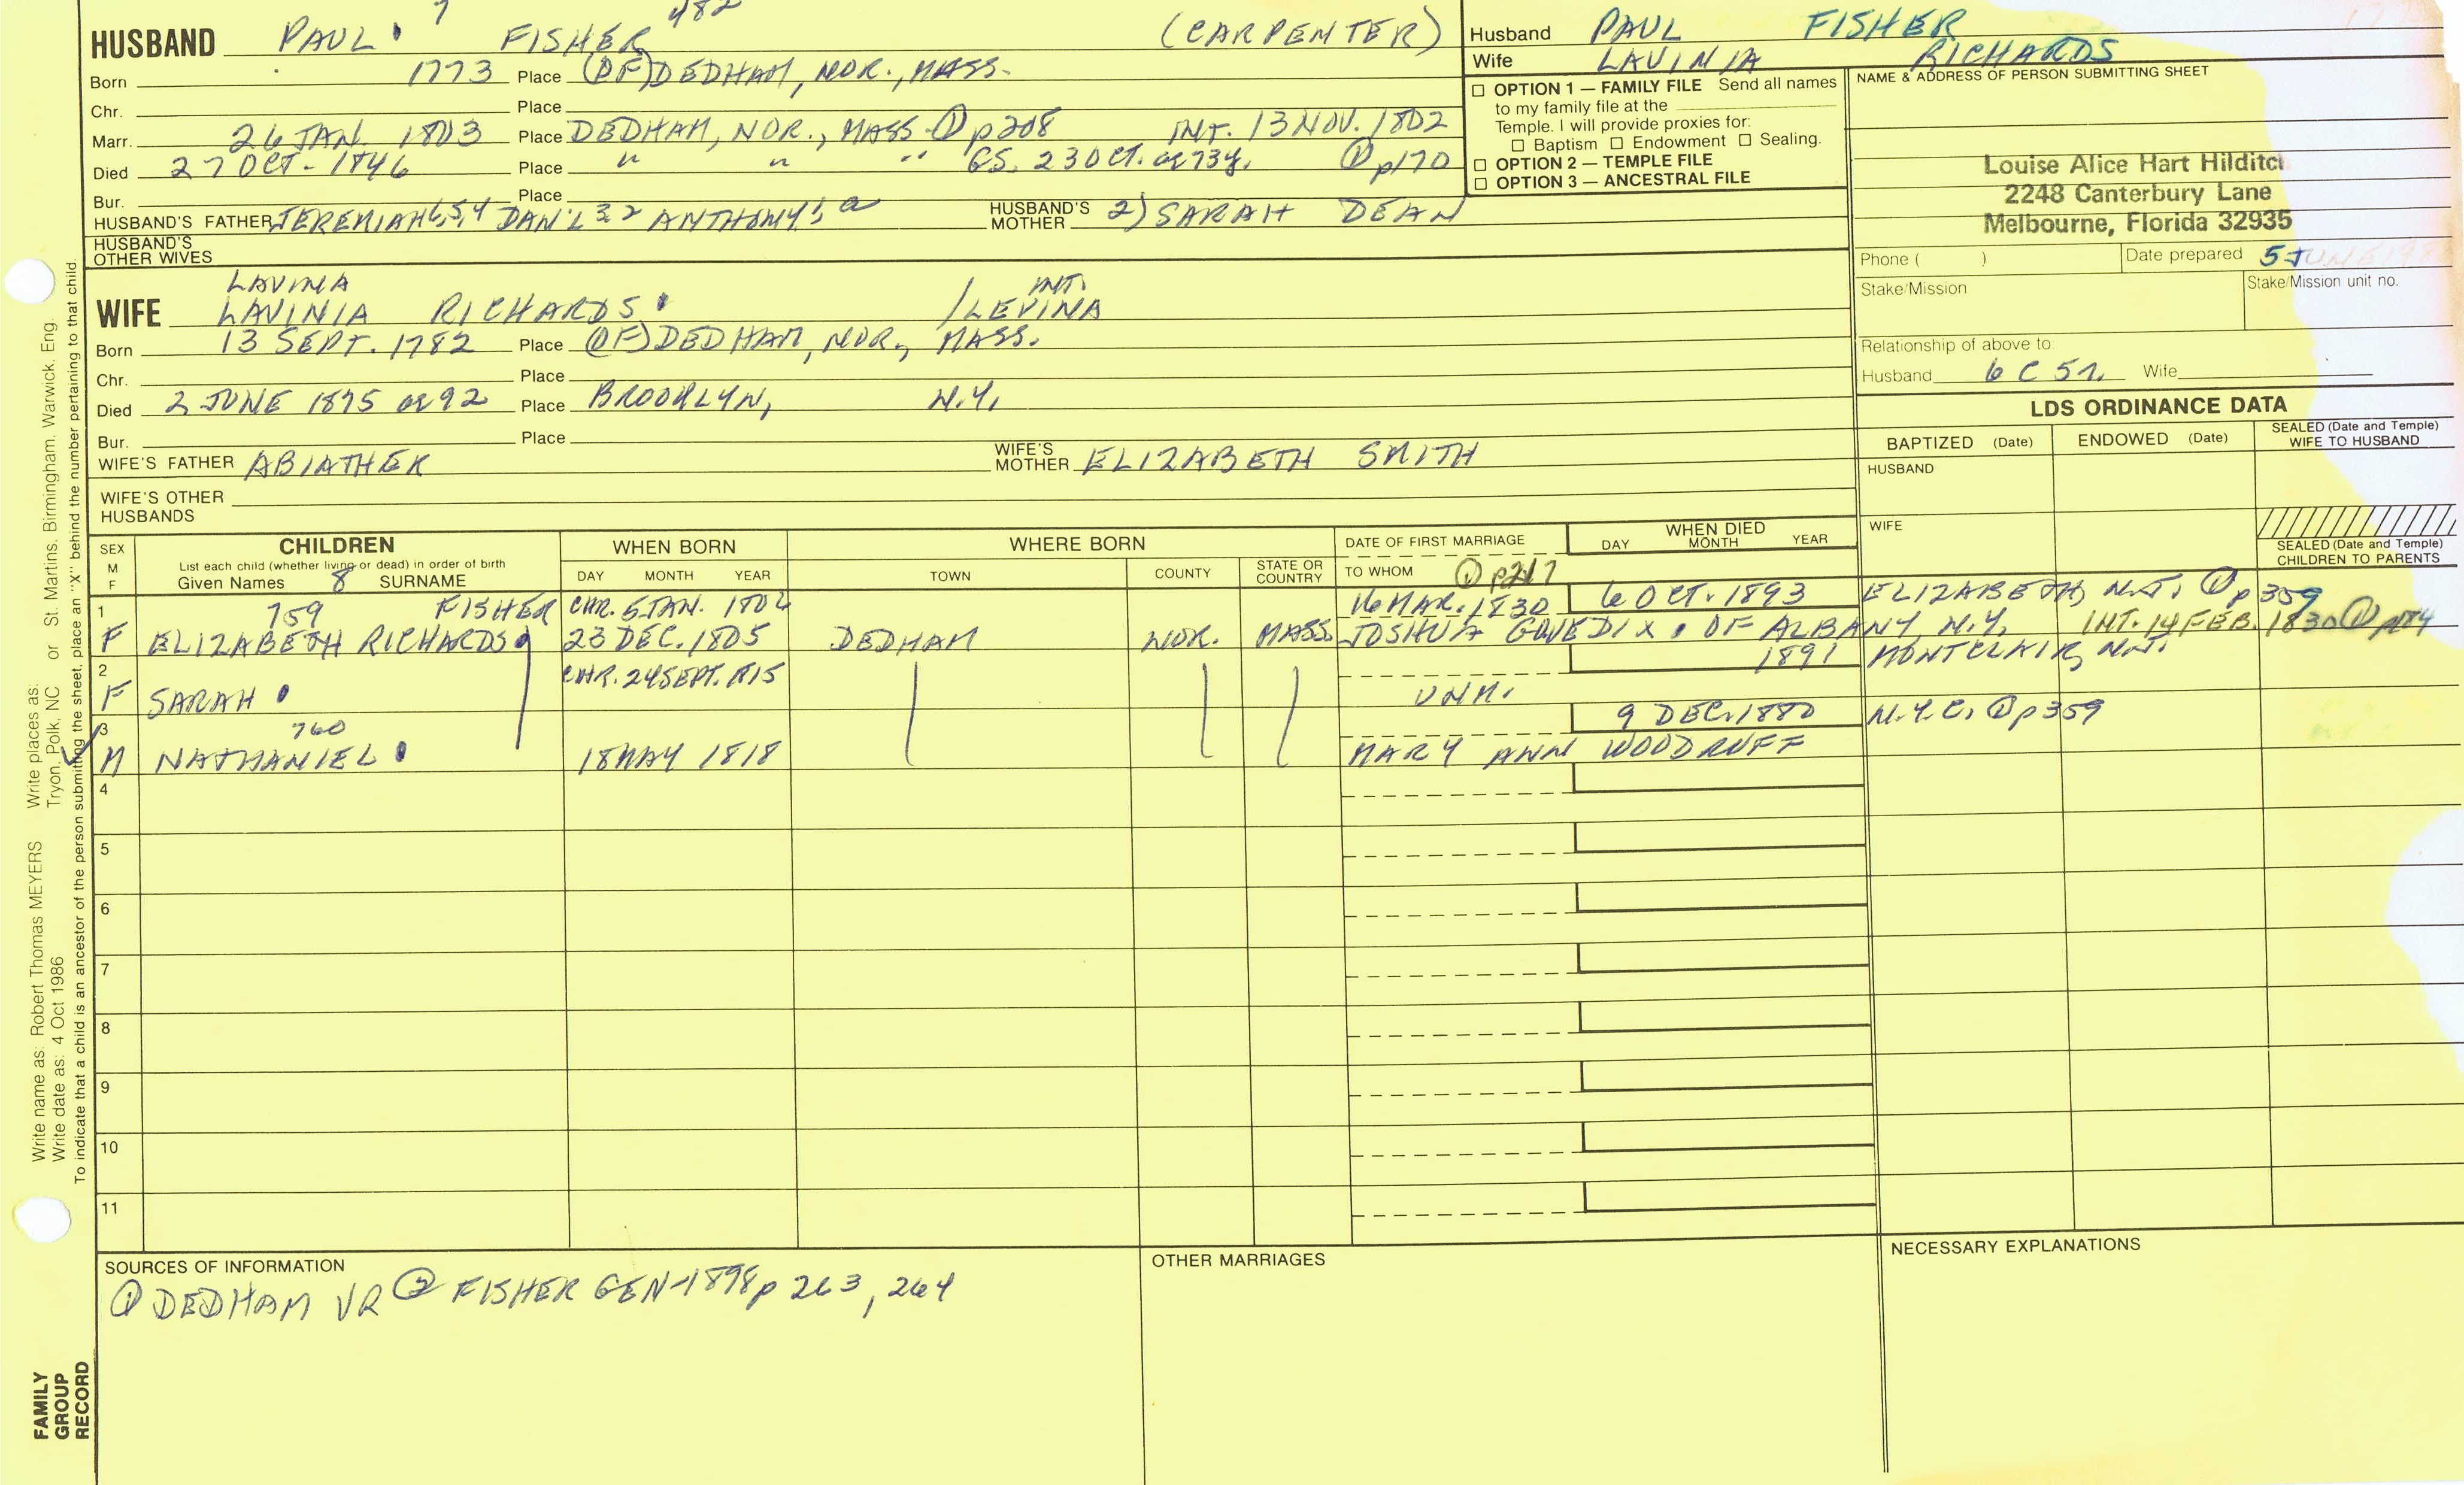 7 482
HUSBAND PAUL FISHER (CARPENTER)
Born 1773 Place (OF) DEDHAM, NOR., MASS.
Chr. Place
Marr. 26 JAN. 1803 Place DEDHAM, NOR., MASS. ① p208 INT. 13 NOV. 1802
Died 27 OCT - 1846 Place " " " GS. 23 OCT. ae 73y. ① p170
Bur. Place
HUSBAND'S FATHER JEREMIAH 6,5,4 DAN'L 3,2 ANTHONY 1, a HUSBAND'S MOTHER 2) SARAH DEAN
HUSBAND'S OTHER WIVES
LAVINA INT.
WIFE LAVINIA RICHARDS / LEVINA
Born 13 SEPT. 1782 Place (OF) DEDHAM, NOR., MASS.
Chr. Place
Died 2 JUNE 1875 ae 92 Place BROOKLYN, N.Y.
Bur. Place
WIFE'S FATHER ABIATHER WIFE'S MOTHER ELIZABETH SMITH
WIFE'S OTHER HUSBANDS
Husband PAUL FISHER
Wife LAVINIA RICHARDS
☐ OPTION 1 — FAMILY FILE Send all names
to my family file at the
Temple. I will provide proxies for:
☐ Baptism ☐ Endowment ☐ Sealing.
☐ OPTION 2 — TEMPLE FILE
☐ OPTION 3 — ANCESTRAL FILE
NAME & ADDRESS OF PERSON SUBMITTING SHEET
Louise Alice Hart Hilditc
2248 Canterbury Lane
Melbourne, Florida 32935
Phone ( ) Date prepared 5 JUNE
Stake/Mission Stake/Mission unit no.
Relationship of above to:
Husband 6 C 5 r. Wife
LDS ORDINANCE DATA
BAPTIZED (Date) ENDOWED (Date) SEALED (Date and Temple) WIFE TO HUSBAND
HUSBAND
WIFE
SEALED (Date and Temple) CHILDREN TO PARENTS
SEX M F
CHILDREN
List each child (whether living or dead) in order of birth
Given Names 8 SURNAME
WHEN BORN
DAY MONTH YEAR
WHERE BORN
TOWN COUNTY STATE OR COUNTRY
DATE OF FIRST MARRIAGE
TO WHOM ① p217
WHEN DIED
DAY MONTH YEAR
1 759 FISHER CHR. 5 JAN. 1806 16 MAR. 1830 6 OCT. 1893 ELIZABETH, N.J. ② p359
F ELIZABETH RICHARDS 23 DEC. 1805 DEDHAM NOR. MASS. JOSHUA GOVE DIX OF ALBANY, N.Y. INT. 14 FEB. 1830 ① p184
2 CHR. 24 SEPT. 1815 1891 MONTCLAIR, N.J.
F SARAH UNM.
3 760 9 DEC. 1880 N.Y.C. ② p359
M NATHANIEL 18 MAY 1818 MARY ANN WOODRUFF
4
5
6
7
8
9
10
11
SOURCES OF INFORMATION
① DEDHAM VR ② FISHER GEN - 1898 p 263, 264
OTHER MARRIAGES
NECESSARY EXPLANATIONS
Write name as: Robert Thomas MEYERS Write places as: Tryon, Polk, NC or St. Martins, Birmingham, Warwick, Eng.
Write date as: 4 Oct 1986
To indicate that a child is an ancestor of the person submitting the sheet, place an "X" behind the number pertaining to that child.
FAMILY
GROUP
RECORD